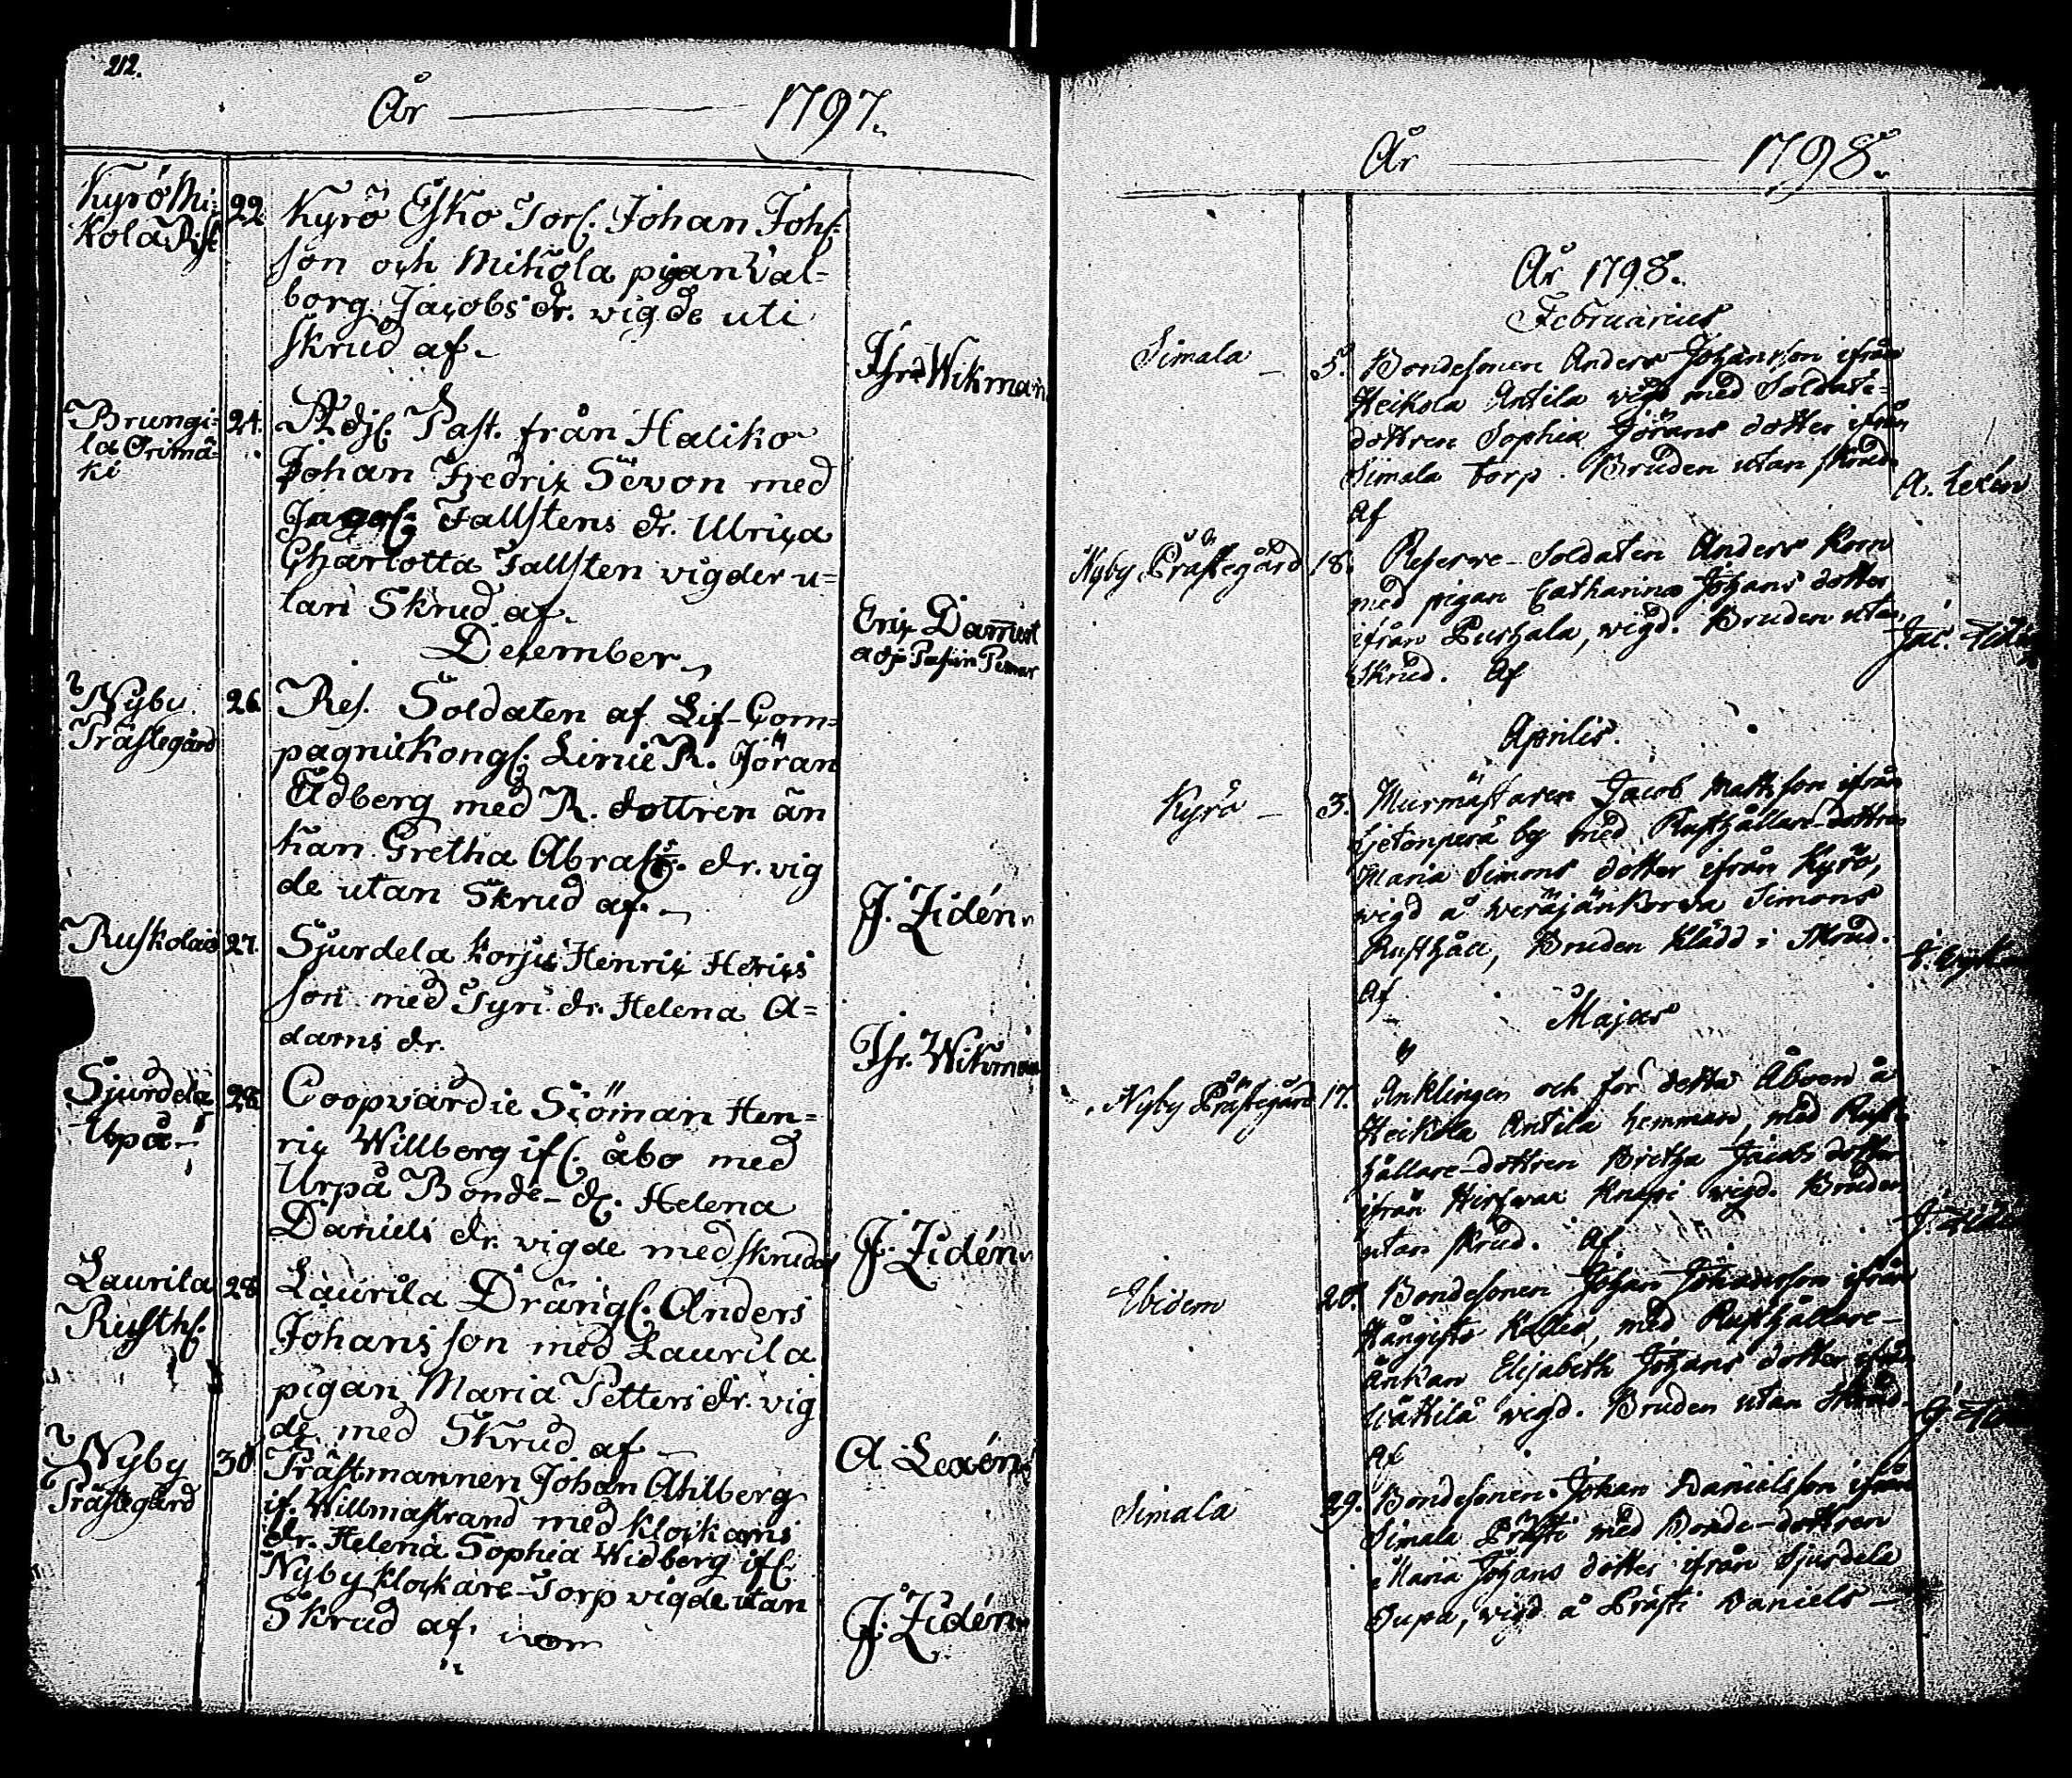 212.
År — 1797.
Kyrö Mi=
kola Rist
22
Kyrö Esko Sors. Johan Johs=
son och Mikola pigan Val=
borg Jacobs dr. vigde uti
skrud af.
Wikman
Brungi=
la Orimä=
ki
24.
Adj. Past. från Haliko
Johan Fredric Sevon med
Fallstens dr. Ulrica
Charlotta Fallsten vigder u=
tan Skrud af.
Eric Damert
adj. Past. in Pemar
December
Nyby
Prästegård
26.
Res. Soldaten af Lif-Com=
pagnie Kongs. Linie R. Jöran
Ädberg med R. dottren än
kan Gretha Abras. dr. vig
de utan Skrud af.
J. Zidén.
Ruskola
27.
Sjurdela Korsu Henric Henrics
son med Tyri dr. Helena A=
dams dr.
Wikman
Sjurdela
Upå
28.
Coopvärdie Siöman Hen=
ric Willberg ifr. åbo med
Urpå Bonde-dr. Helena
Daniels dr. vigde med skrud af
J. Zidén.
Laurila
Rusth.
28
Laurila Drängs. Anders
Johans son med Laurila
pigan Maria Petters dr. vig
de med Skrud af
A. Lexén.
Nyby
Prästegård
30.
Prästmannen Johan Ahlberg
if. Willmastrand med Klockarns
dr. Helena Sophia Widberg ifr.
Nyby Klockare-Torp vigde utan
Skrud af.
J. Zidén.
År — 1798.
År 1798.
Februarius
Simala —
5.
Bondesonen Anders Johansson ifrån
Heikola Antila vigd med Soldate-
dottren Sophia Jörans dotter ifrån
Simala torp. Bruden utan skrud
af
A. Lexén
Nyby Prästegård
18.
Reserve-Soldaten Anders Korn
med pigan Catharina Johans dotter
ifrån Purhala, wigd. Bruden utan
Skrud. Af
Jac.
Aprilis.
Kyrö —
3.
Murmästaren Jacob Mattsson ifrån
Ljetonperä by med Rusthållare-dottren
Maria Simons dotter ifrån Kyrö,
wigd å Weräjänkorwa Simons
Rusthåll, Bruden Klädd i Skrud.
Af
Majus
Nyby Prästegård
17.
Änklingen och för detta Åboen å
Heikola Antila hemman, med Rust-
hållare-dottren Britha Jacobs dotter
ifrån Hirswax Knapi wigd. Bruden
utan skrud. Af
J. Zidén
Ibidem
20.
Bondesonen Johan Johansson ifrån
Hångisto Kallis, med Rusthållare-
Änkan Elisabeth Johans dotter ifrån
Wättilä wigd. Bruden utan Skrud.
Af
Simala
29.
Bondesonen Johan Danielsson ifrån
Simala Prästi med Bonde-dottren
Maria Johans dotter ifrån Sjurdela
Supa, wigd å Prästi Daniels —